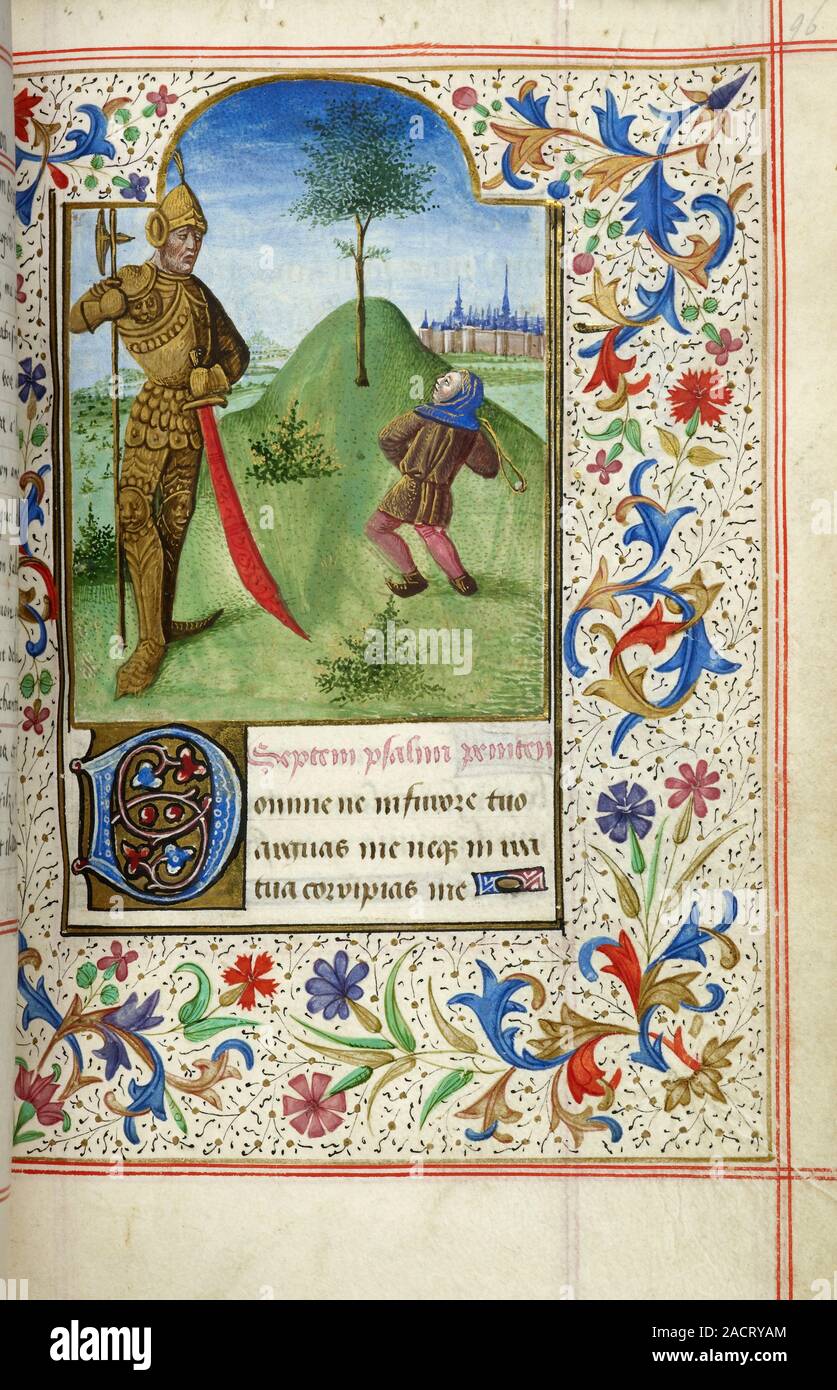 96
Septem psalmi peniten
omine ne in furore tuo
arguas me neq; in ira
tua corripias me
alamy
alamy
Image ID: 2ACRYAM
www.alamy.com